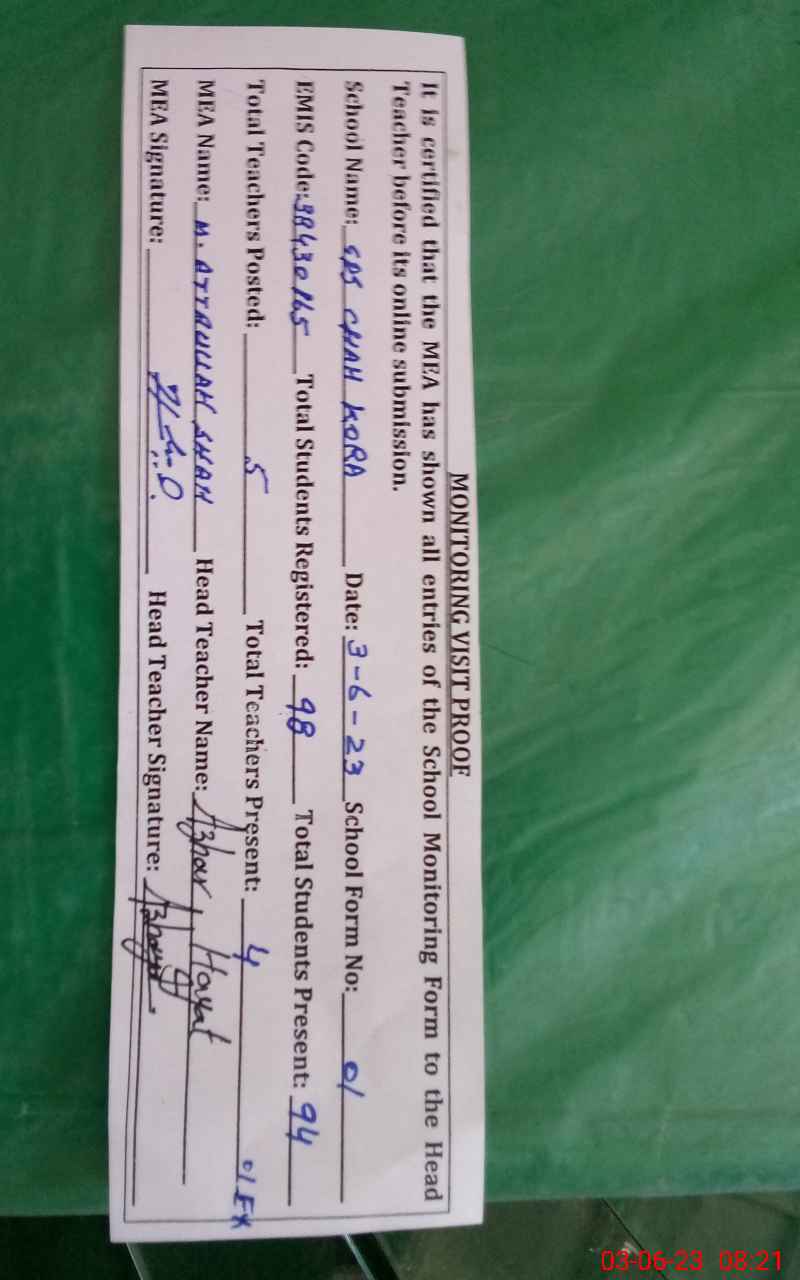 MONITORING VISIT PROOF
It is certified that the MEA has shown all entries of the School Monitoring Form to the Head
Teacher before its online submission.
School Name: GPS CHAH KORA Date: 3-6-23 School Form No: 01
EMIS Code: 38430165 Total Students Registered: 98 Total Students Present: 94
Total Teachers Posted: 5 Total Teachers Present: 4 01 EX
MEA Name: M. ATTAULLAH SHAH Head Teacher Name: Azhar Hayat
MEA Signature: Head Teacher Signature:
03-06-23 08:21